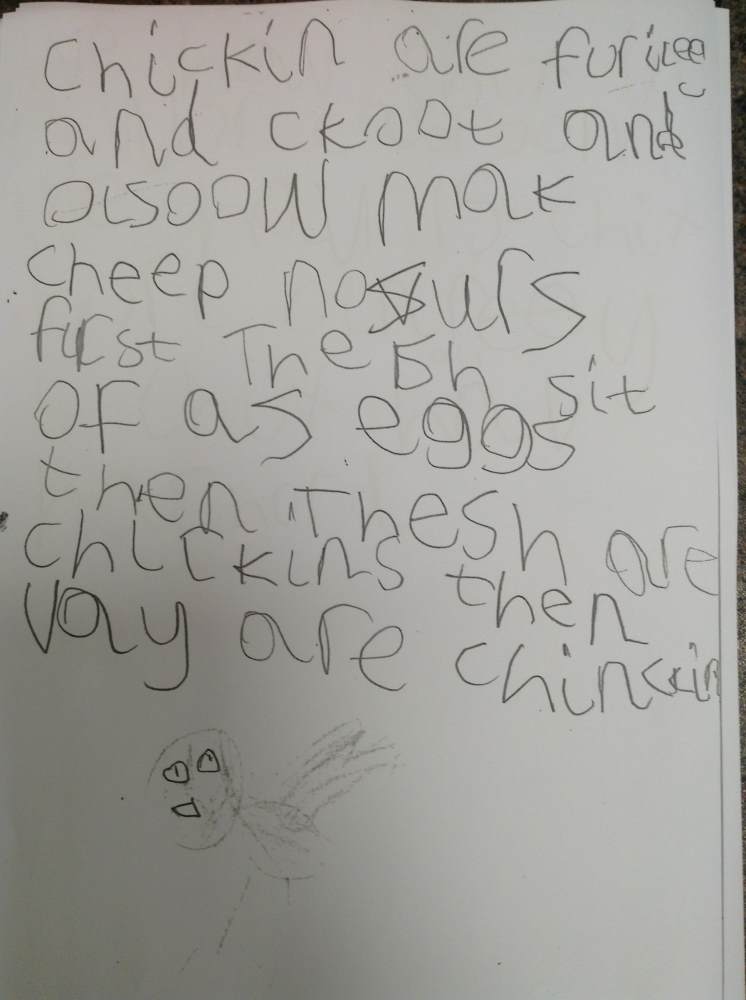 Chickin are furicee
and ckoot and
olsoow mak
cheep nosurs
first The sh sit
of as eggs
then Thesh are
chickins then
vay are chinckin